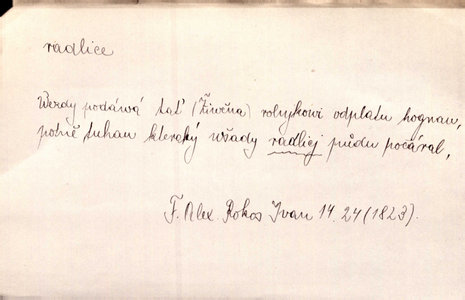 radlice
Wezdy podáwá tať (Žiwěna) rolnjkowi odplatu hognau,
potně tuhau kteraký wšady radlicj půdu pocáral,
F. Alex. Rokos Ivan 14. 24 (1823).